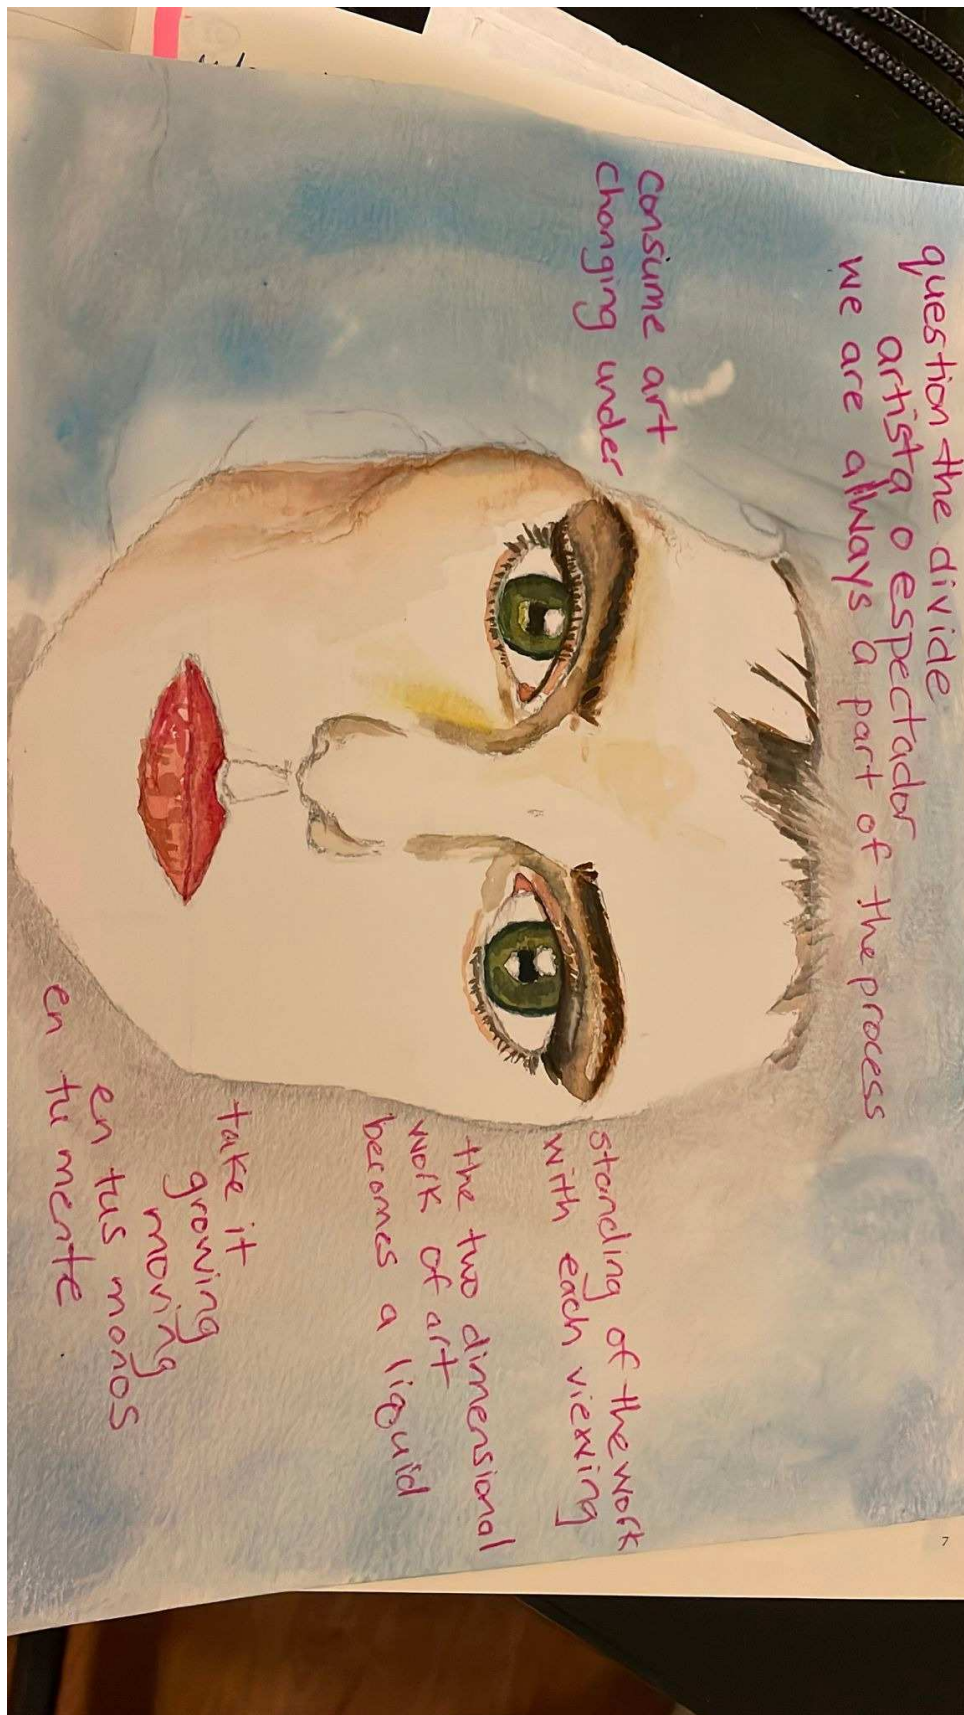 question the divide
artista o espectador
we are always a part of the process
consume art
changing under
standing of the work
with each viewing
the two dimensional
work of art
becomes a liquid
take it
growing
moving
en tus manos
en tu mente
7